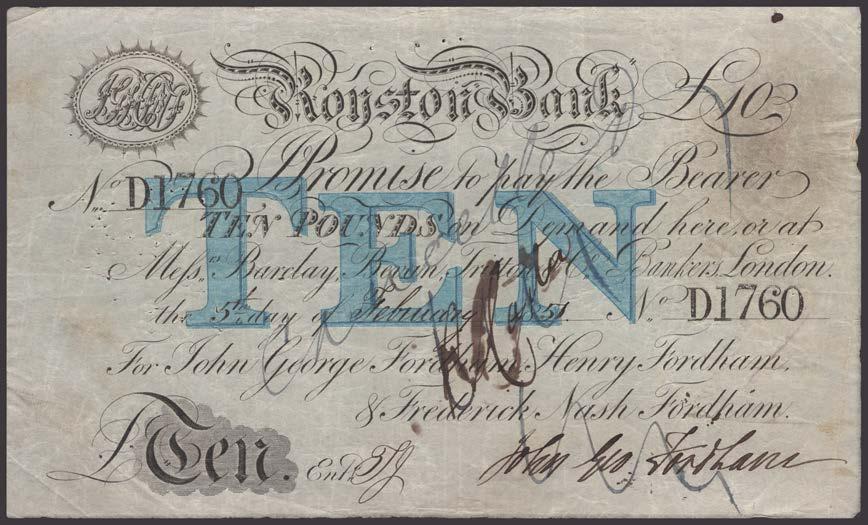 Royston Bank £10
I Promise to pay the Bearer
No. D1760
TEN POUNDS on Demand here, or at
Messrs. Barclay, Bevan, Tritton & Co. Bankers, London.
the 5th day of February 1851 No. D1760
TEN
For John George Fordham, Henry Fordham,
& Frederick Nash Fordham.
£ Ten. Entd.
John Geo. Fordham